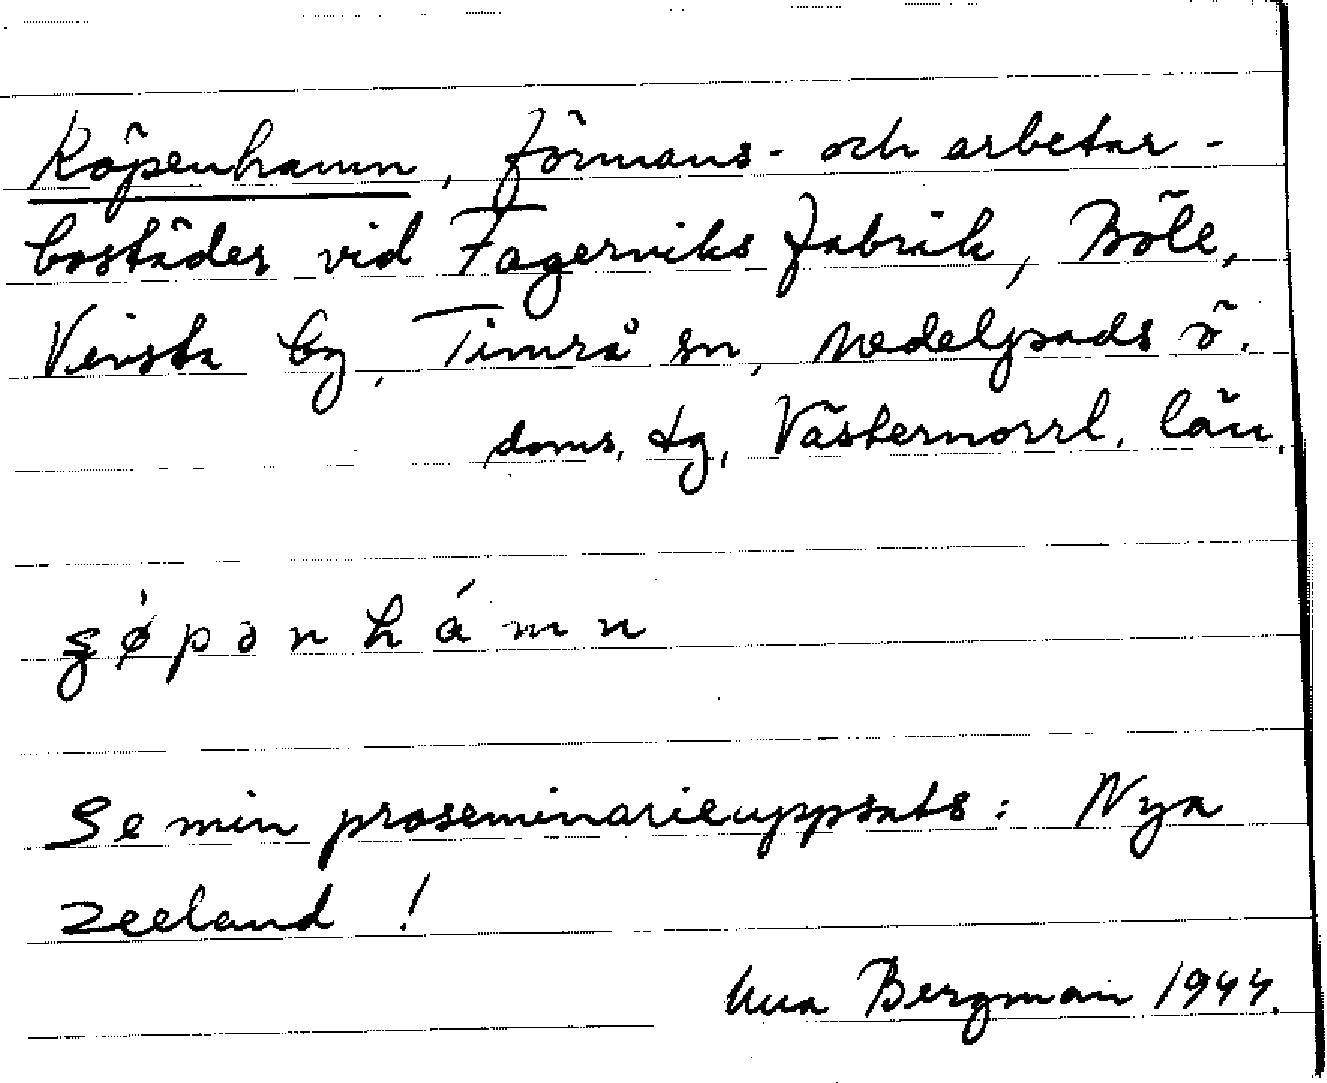 Köpenhamn, förmans- och arbetar-
bostäder vid Fagerviks fabrik, Böle,
Vivsta by, Timrå sn, Medelpads ö.
doms. tg, Västernorrl. län.
göpənhámn
Se min proseminarieuppsats: Nya
Zeeland!
Bergman 1944.